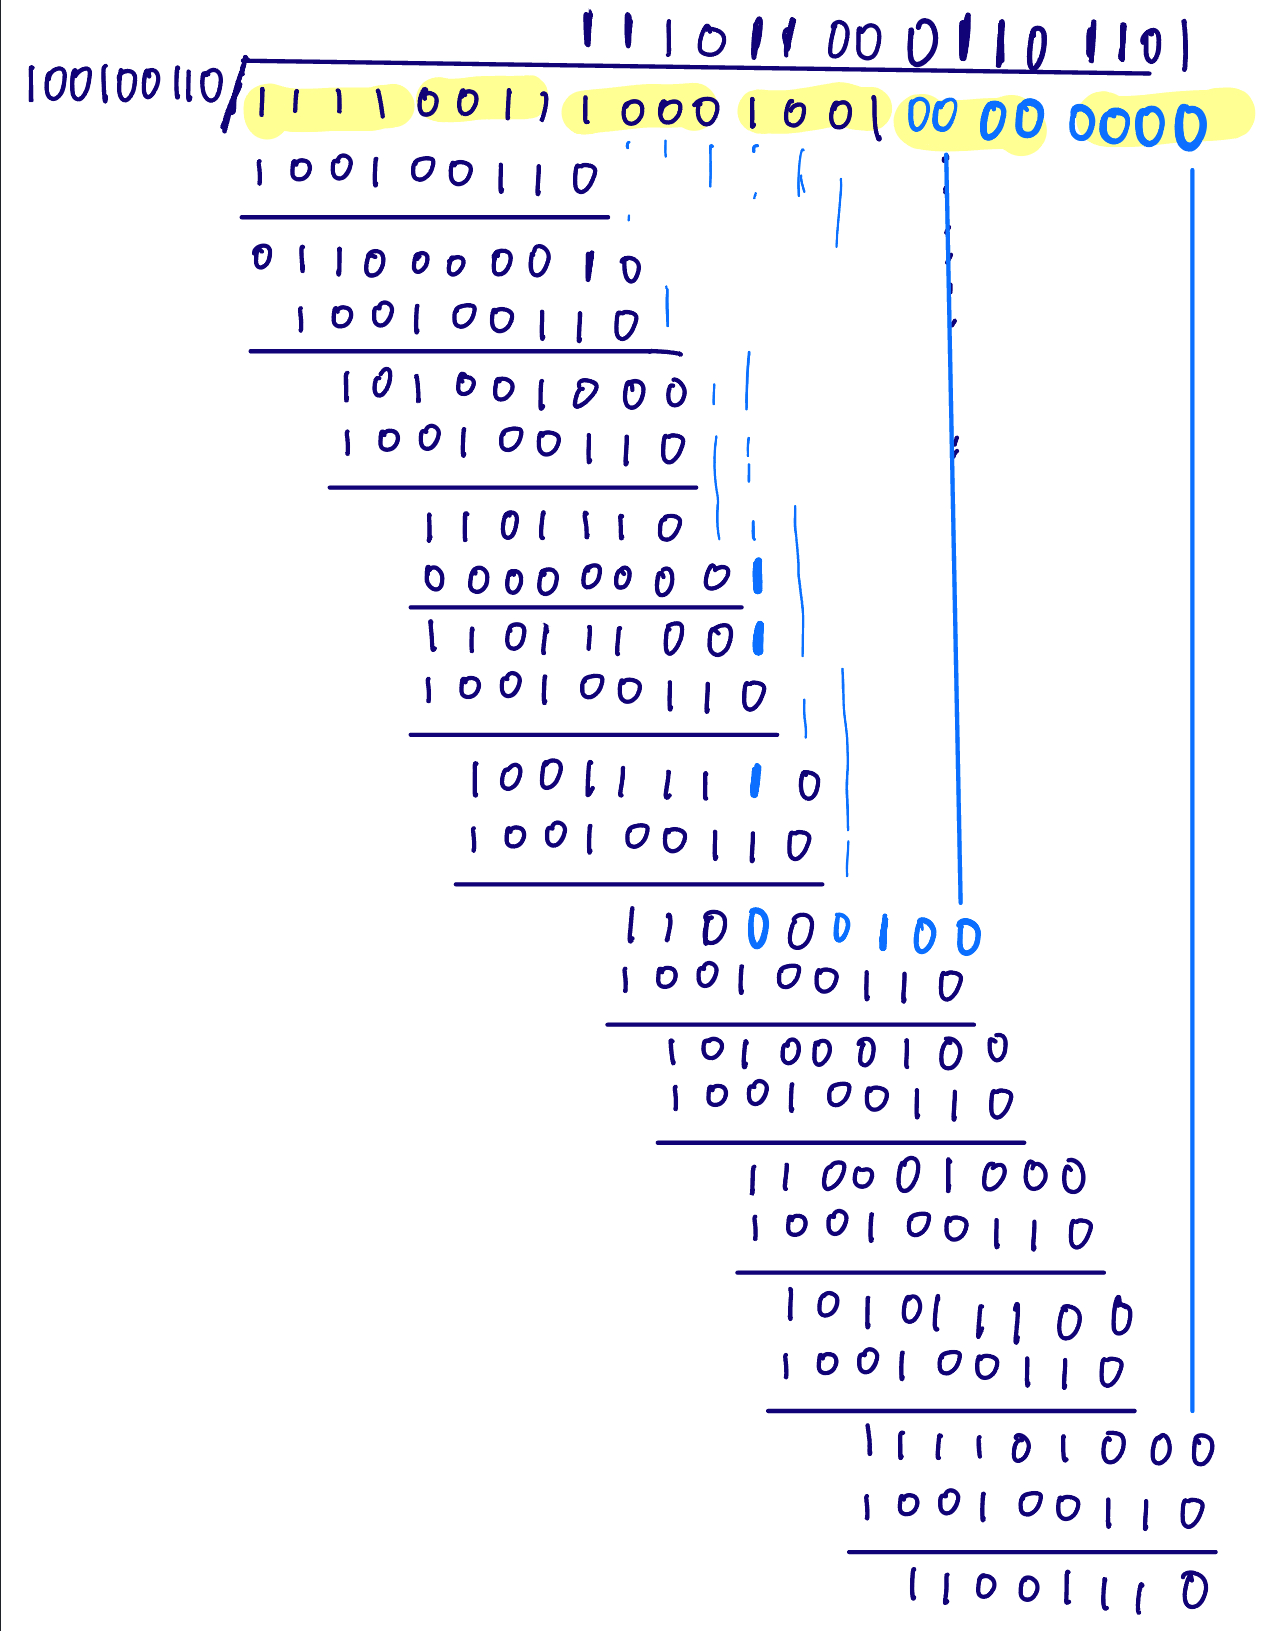 1110110001101101
100100110
1111001110001001 00000000
100100110
0110000010
100100110
101001000
100100110
1101110
000000001
110111001
100100110
100111110
100100110
110000100
100100110
101000100
100100110
110001000
100100110
101011100
100100110
111101000
100100110
11001110